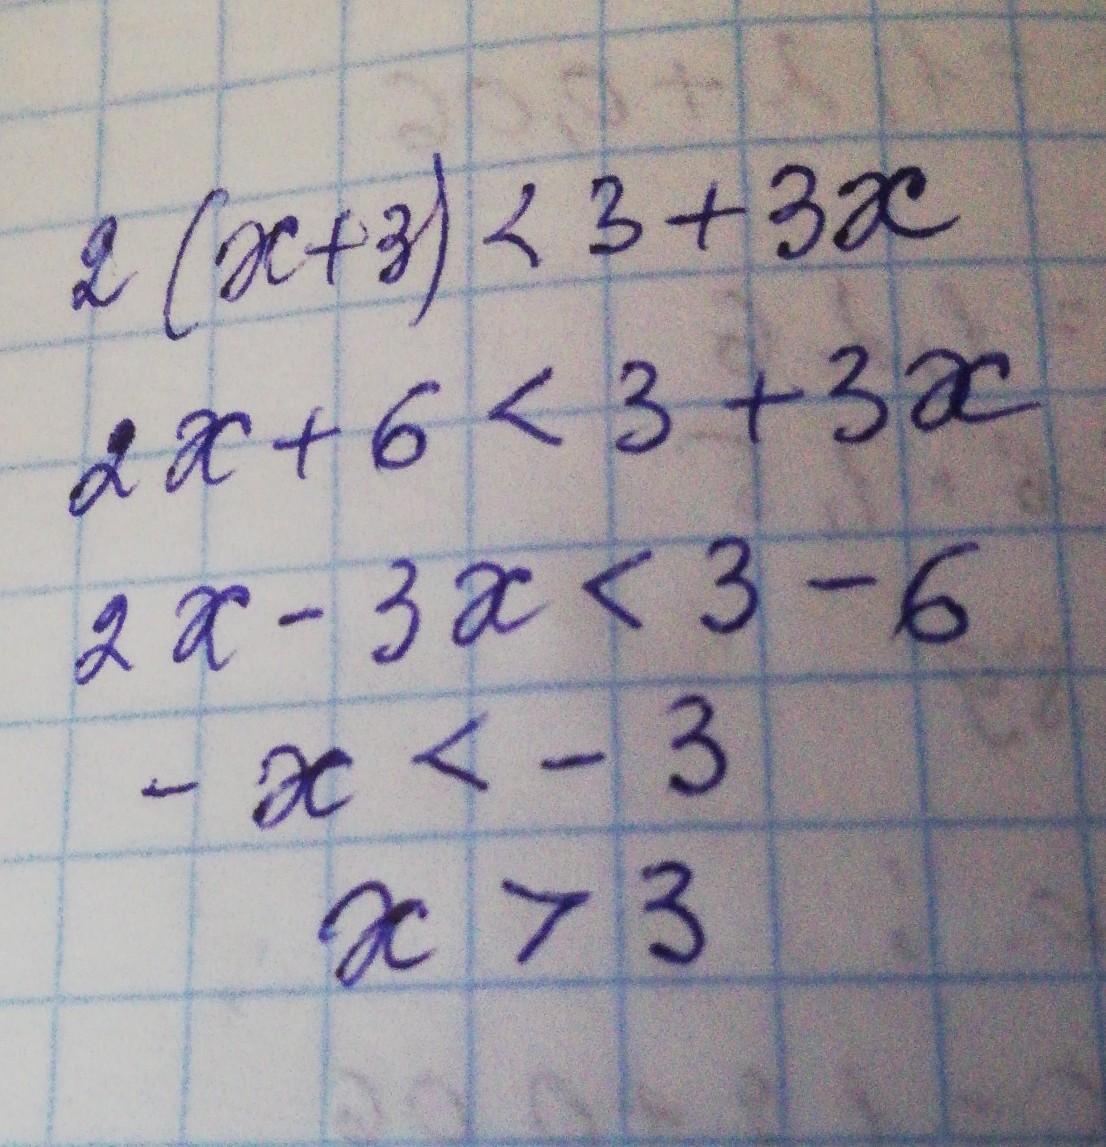 2(x+3) < 3 + 3x
2x + 6 < 3 + 3x
2x - 3x < 3 - 6
- x < - 3
x > 3